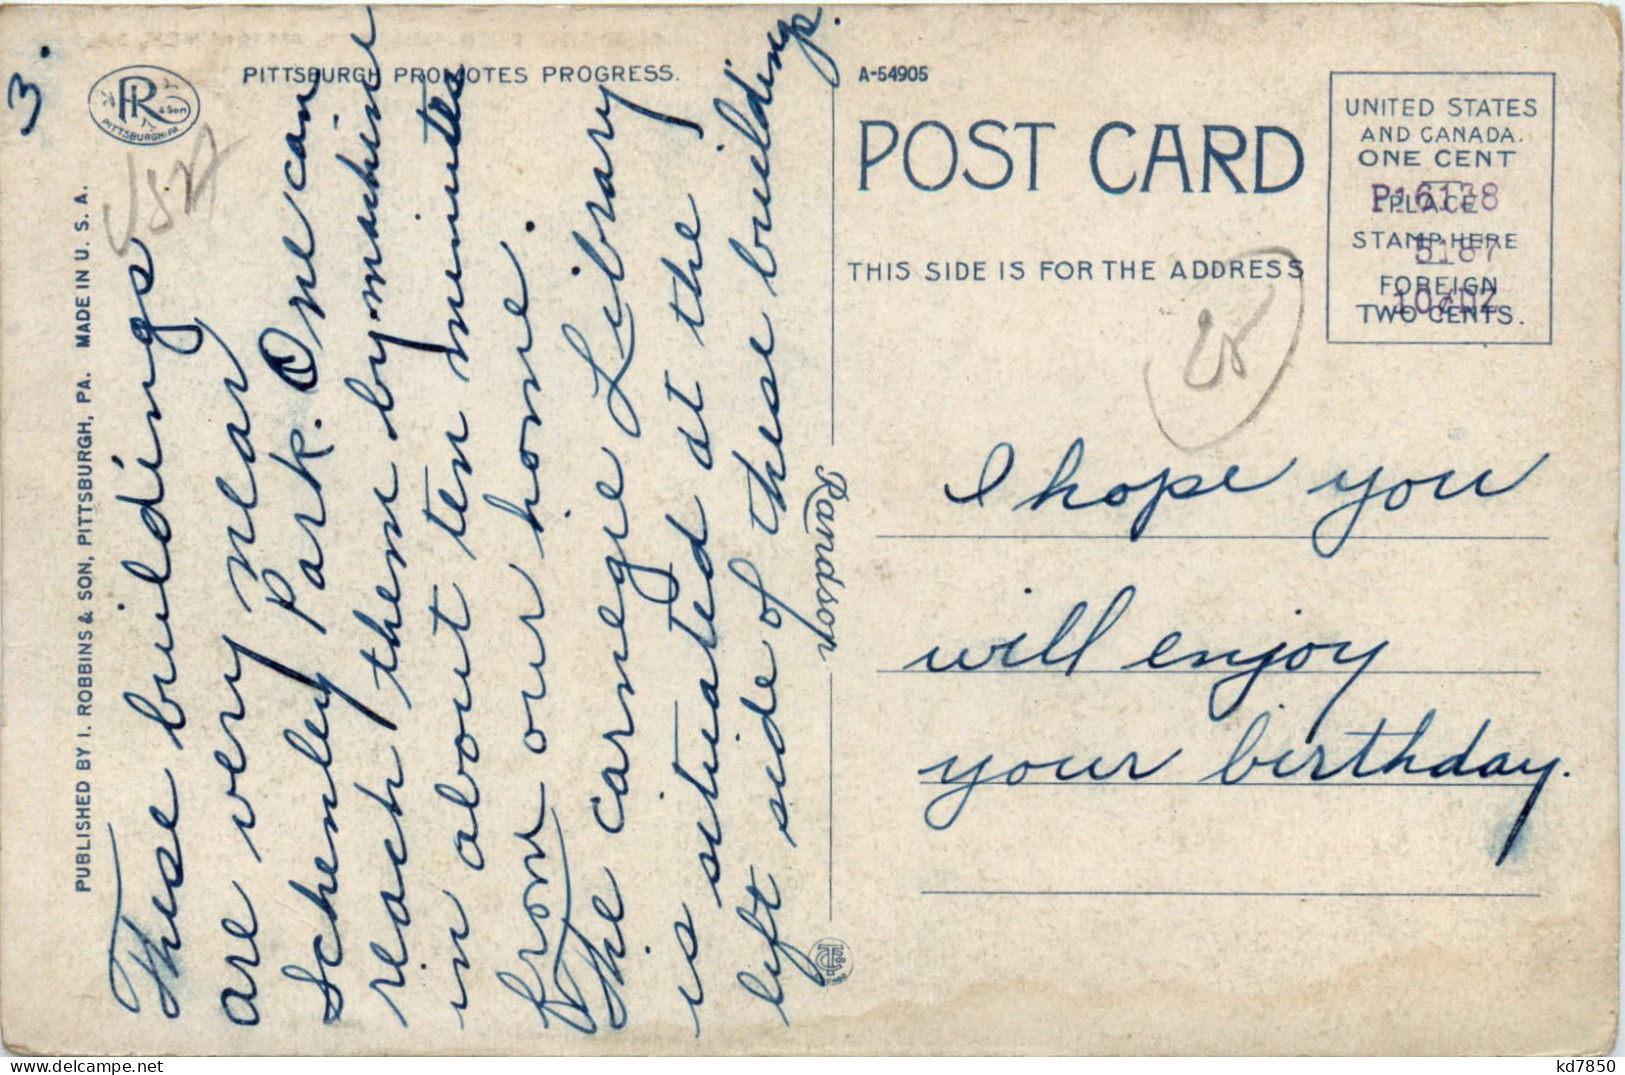 3.
PITTSBURGH PROMOTES PROGRESS.
PR & Son
PITTSBURGH, PA.
USA
PUBLISHED BY I. ROBBINS & SON, PITTSBURGH, PA. MADE IN U. S. A.
These buildings
are very near
Schenley Park. One can
reach them by machine
in about ten minutes
from our home.
The Carnegie Library
is situated at the
left side of these buildings.
A-54905
POST CARD
THIS SIDE IS FOR THE ADDRESS
UNITED STATES
AND CANADA.
ONE CENT
PLACE
STAMP HERE
FOREIGN
TWO CENTS.
5187
10¢DZ
I hope you
will enjoy
your birthday.
kd7850